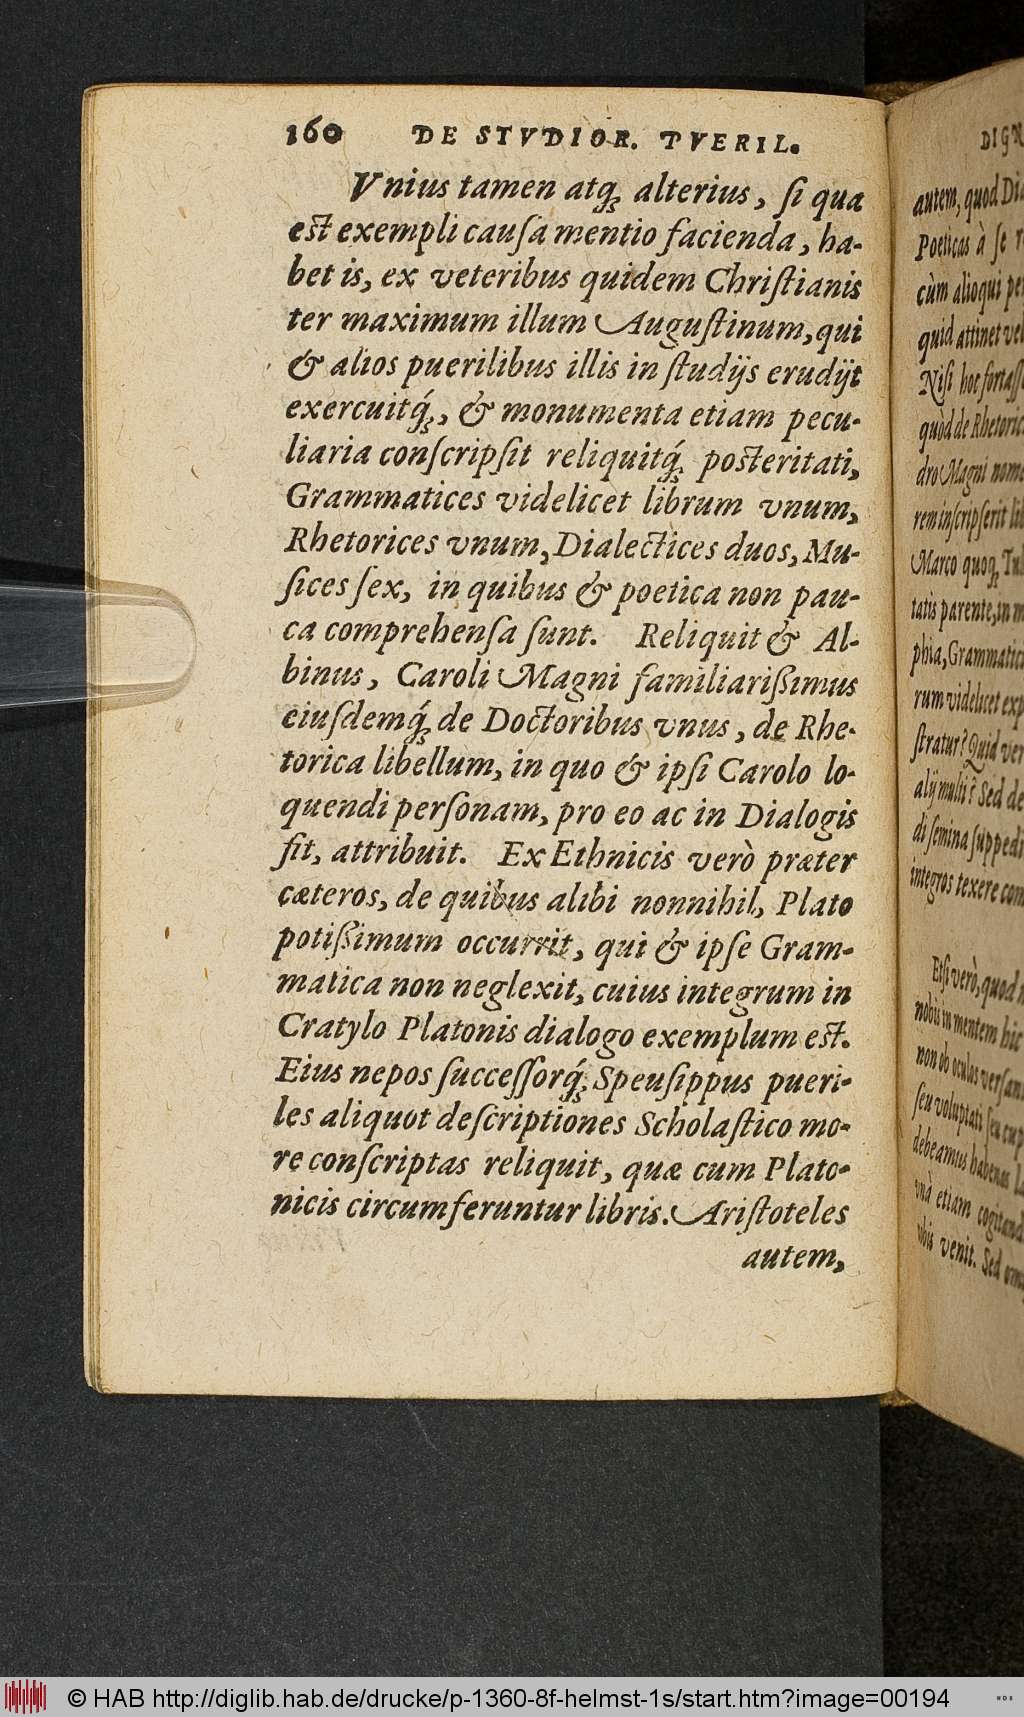 160 DE STVDIOR. PVERIL.
Vnius tamen atq́; alterius, ſi qua
est exempli cauſa mentio facienda, ha-
bet is, ex veteribus quidem Chriſtianis
ter maximum illum Auguſtinum, qui
& alios puerilibus illis in ſtudijs erudijt
exercuitq́;, & monumenta etiam pecu-
liaria conſcripſit reliquitq́; posteritati,
Grammatices videlicet librum vnum,
Rhetorices vnum, Dialectices duos, Mu-
ſices ſex, in quibus & poetica non pau-
ca comprehenſa ſunt. Reliquit & Al-
binus, Caroli Magni familiarißimus
eiuſdemq́; de Doctoribus vnus, de Rhe-
torica libellum, in quo & ipſi Carolo lo-
quendi perſonam, pro eo ac in Dialogis
fit, attribuit. Ex Ethnicis verò præter
cæteros, de quibus alibi nonnihil, Plato
potißimum occurrit, qui & ipſe Gram-
matica non neglexit, cuius integrum in
Cratylo Platonis dialogo exemplum est.
Eius nepos ſucceſſorq́; Speuſippus pueri-
les aliquot deſcriptiones Scholaſtico mo-
re conſcriptas reliquit, quæ cum Plato-
nicis circumferuntur libris. Ariſtoteles
autem,
autem, quod
Poeticas à ſe
cùm alioqui
quid attinet
Niſi hoc
quòd de
dro Magni
rem inſcripſerit
Marco quoq;
tatis parente, in
phia, Grammatic
rum videlicet
ſtratur? Quid
alij multi? Sed de
di ſemina
integros texere
Etſi verò, quod
nobis in mentem hic
non ob oculos
ſeu voluptati ſeu
debeamus habenas
vnà etiam
venit. Sed
© HAB http://diglib.hab.de/drucke/p-1360-8f-helmst-1s/start.htm?image=00194